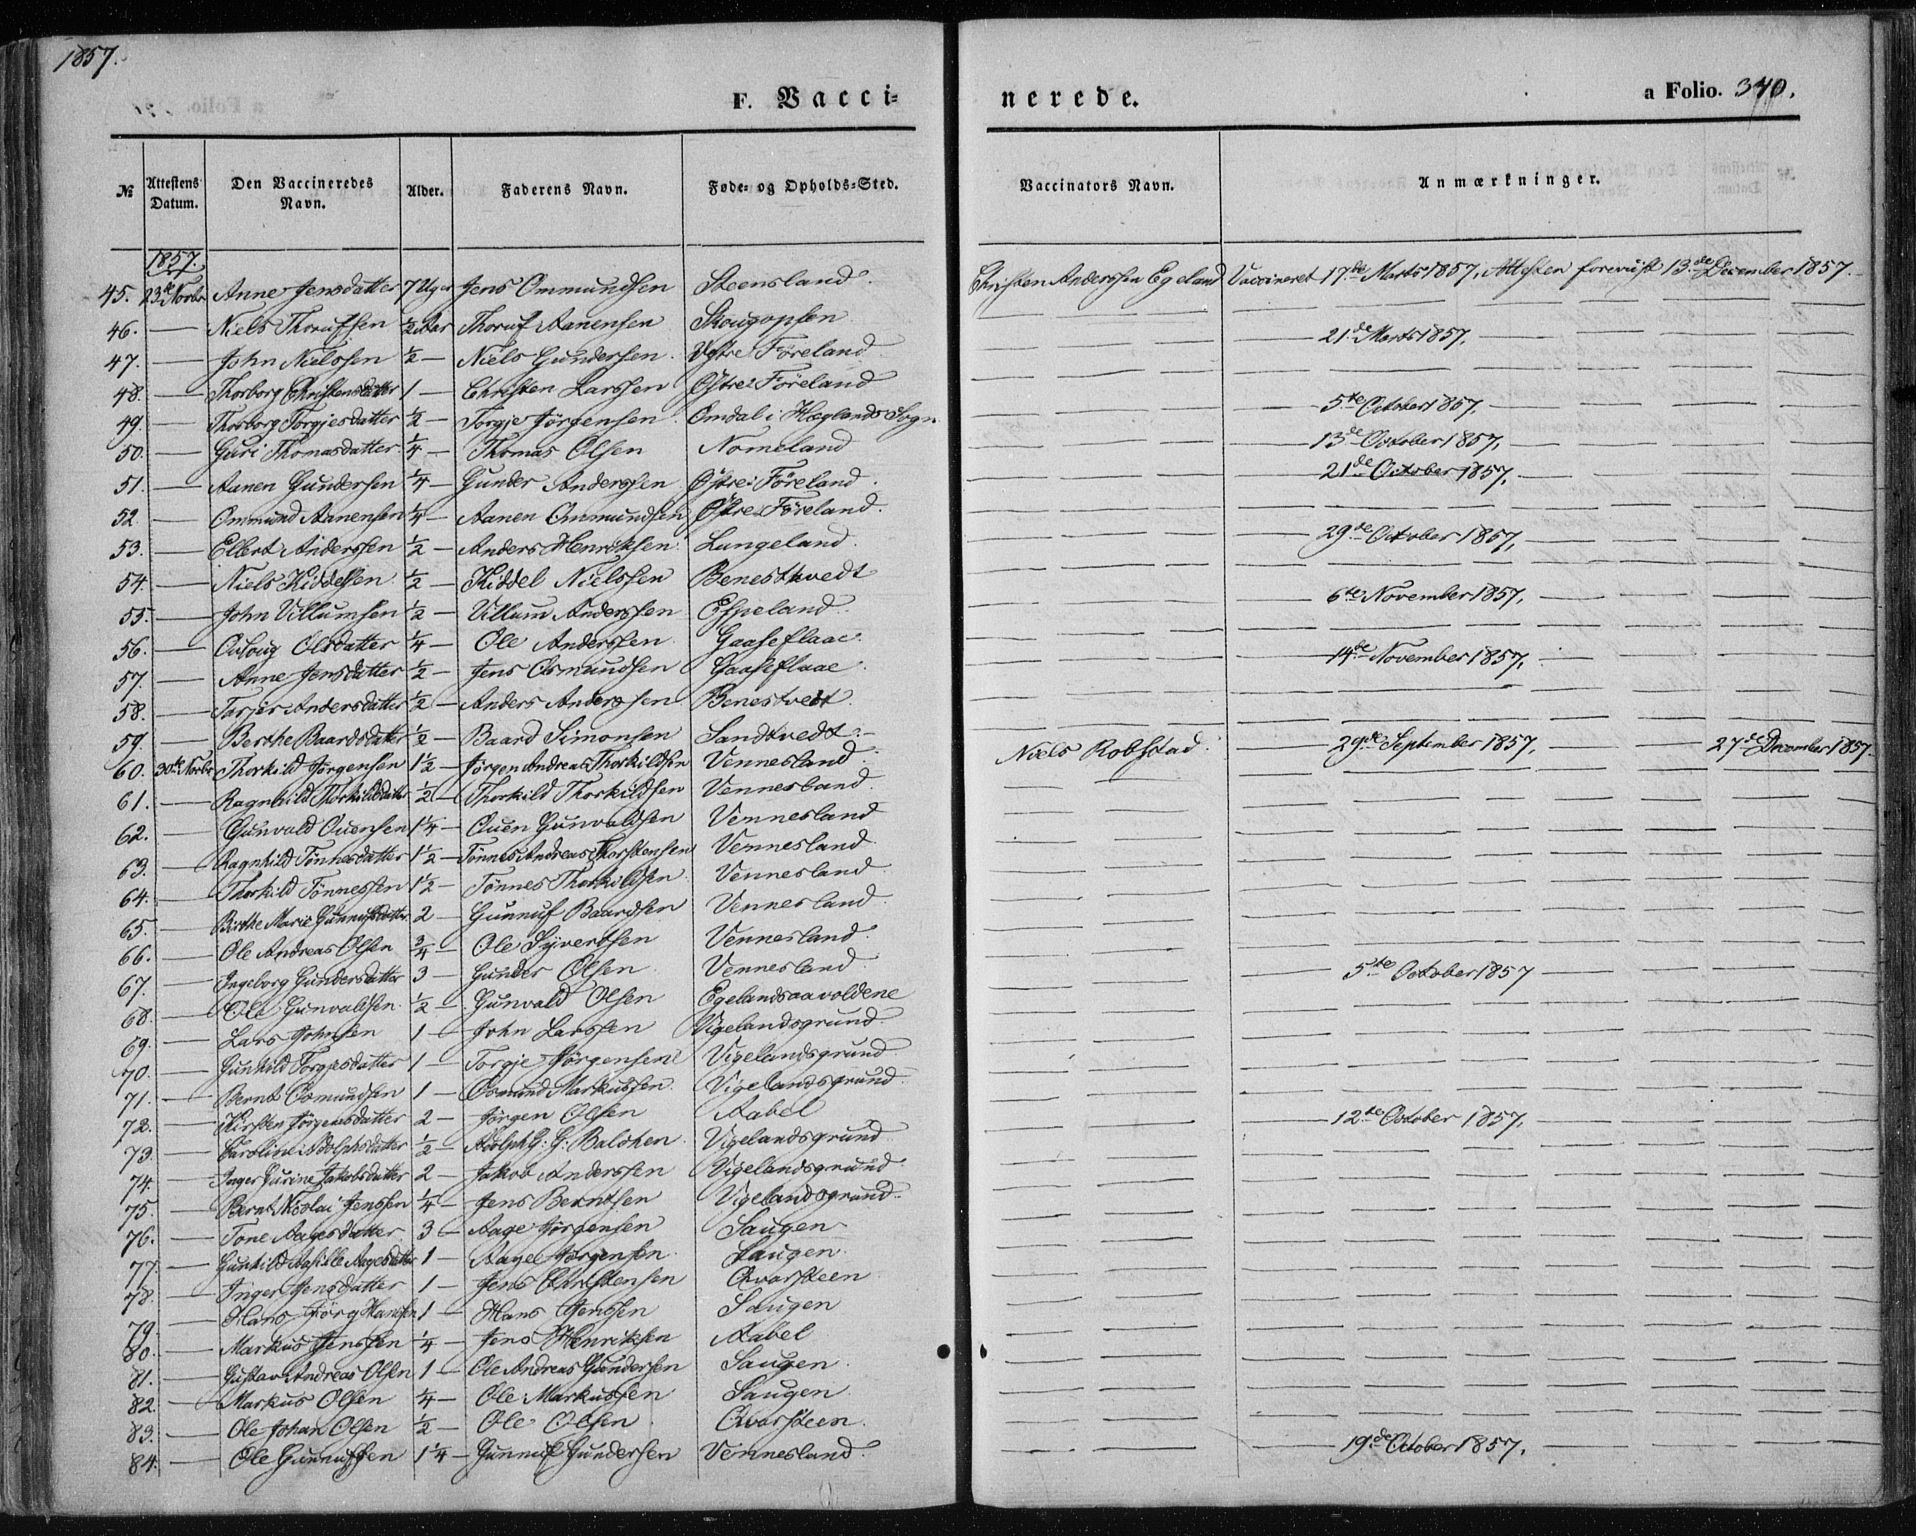 1857.
F. Vacci-
nerede.
a Folio. 340.
№ Attestens Datum. Den Vaccineredes Navn. Alder. Faderens Navn. Føde- og Opholds-Sted. Vaccinators Navn. Anmærkninger.
1857.
45. 23de Novbr Anne Jensdatter 7 Uger Jens Ommundsen Steensland. Christen Anderssen Egeland Vaccineret 17de Marts 1857, Attesten foreviist 13de December 1857.
46. — Niels Thorufsen ½ Aar Thoruf Aanensen Skougopsen
47. — John Nielssen ½ — Niels Gundersen Vestre Føreland — 21de Marts 1857, —
48. — Thorborg Christensdatter 1 — Christen Larssen Østre Føreland
49. — Thorborg Torgjesdatter ½ — Torgje Jørgensen Omdal i Hæglands Sogn — 5te October 1857, —
50. — Guri Thomasdatter ¼ — Thomas Olsen Nomeland — 13de October 1857,
51. — Aanen Gundersen ¼ — Gunder Anderssen Østre Føreland. — 21de October 1857,
52. — Ommund Aanensen ¼ — Aanen Ommundsen Østre Føreland.
53. — Elbert Anderssen ½ — Anders Henriksen Lungeland. — 29de October 1857,
54. — Niels Kiddelsen ½ — Kiddel Nielssen Benesthvedt
55. — John Villumsen ½ — Villum Anderssen Espeland. — 6te November 1857,
56. — Osloug Olsdatter ¼ — Ole Anderssen Gaaseflaae.
57. — Anne Jensdatter ½ — Jens Osmundsen Gaaseflaae. — 14de November 1857,
58. — Tarjer Andersdatter ½ — Anders Anderssen Benestvedt.
59. — Berthe Baardsdatter ½ — Baard Simonsen Sandtvedt. —
60. 30te Novbr Thorkild Jørgensen 1½ — Jørgen Andreas Thorkildsen Vennesland. Niels Robstad. — 29de September 1857, — 27de December 1857.
61. — Ragnhild Thorkildsdatter ½ — Thorkild Thorkildsen Vennesland.
62. — Gunvald Ouensen 1¼ — Ouen Gunvaldsen Vennesland
63. — Ragnhild Tønnesdatter 1½ — Tønnes Andreas Thorstensen Vennesland.
64. — Thorkild Tønnessen 1½ — Tønnes Thorkildsen. Vennesland.
65. — Birthe Marie Gunnufsdatter 2 — Gunnuf Baardsen Vennesland.
66. — Ole Andreas Olsen ¾ — Ole Syvertsen Vennesland.
67. — Ingeborg Gundersdatter 3 — Gunder Olsen Vennesland. — 5te October 1857 —
68. — Ole Gunvaldsen ½ — Gunvald Olsen Egelandsaavoldene
69. — Lars Johnsen 1 — John Larssen Vigelandsgrund.
70. — Gunhild Torgjesdatter 1 — Torgje Jørgensen Vigelandsgrund
71. — Bernt Osmundsen 1 — Osmund Markussen. Vigelandsgrund.
72. — Kirsten Jørgensdatter 2 — Jørgen Olsen Aabel — 12te October 1857,
73. — Caroline Adolphsdatter ½ — Adolph G. G. Balchen. Vigelandsgrund
74. — Inger Gurine Jakobsdatter 2 — Jakob Anderssen Vigelandsgrund.
75. — Bernt Nicolai Jenssen ¼ — Jens Berntsen Vigelandsgrund.
76. — Tone Aagesdatter 3 — Aage Jørgensen Saugen
77. — Gunhild Aasille Aagesdatter 1 — Aage Jørgensen Saugen.
78. — Inger Jensdatter 1 — Jens Christensen Qvarsteen
79. — Hans Jørg Hansen 1 — Hans Jenssen Saugen
80. — Markus Jenssen ¼ — Jens Henriksen Aabel
81. — Gustav Andreas Olsen 1 — Ole Andreas Gundersen Saugen.
82. — Markus Olsen ¼ — Ole Markussen Saugen
83. — Ole Johan Olsen ½ — Ole Olsen Qvarsteen.
84. — Ole Gunnufsen 1¼ — Gunnuf Gundersen Vennesland. — 19de October 1857,